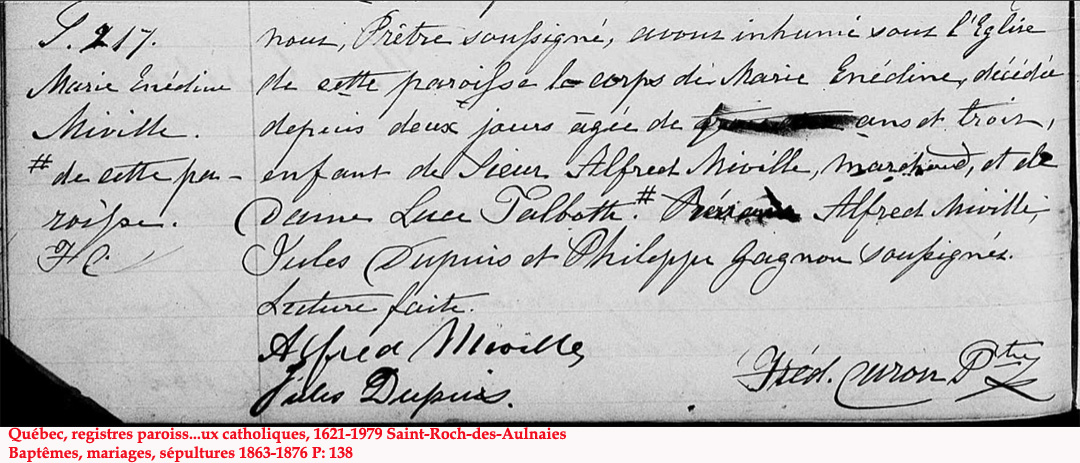 S. 217.
Marie Enédine
Miville.
# de cette pa-
roisse.
F C
nous, Prêtre soussigné, avons inhumé sous l'Eglise
de cette paroisse le corps de Marie Enédine, décédée
depuis deux jours âgée de ans et trois,
enfant de Sieur Alfred Miville, marchand, et de
Dame Luce Talbott.# Alfred Miville,
Jules Dupuis et Philippe Gagnon soussignés.
Lecture faite.
Alfred Miville
Jules Dupuis.
Fréd. Caron Ptre
Québec, registres paroiss...ux catholiques, 1621-1979 Saint-Roch-des-Aulnaies
Baptêmes, mariages, sépultures 1863-1876 P: 138